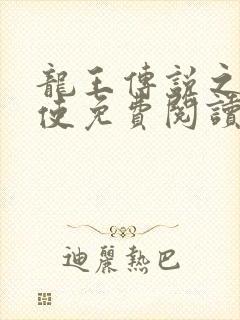 龍王傳說之
使免費閱讀
迪麗熱巴